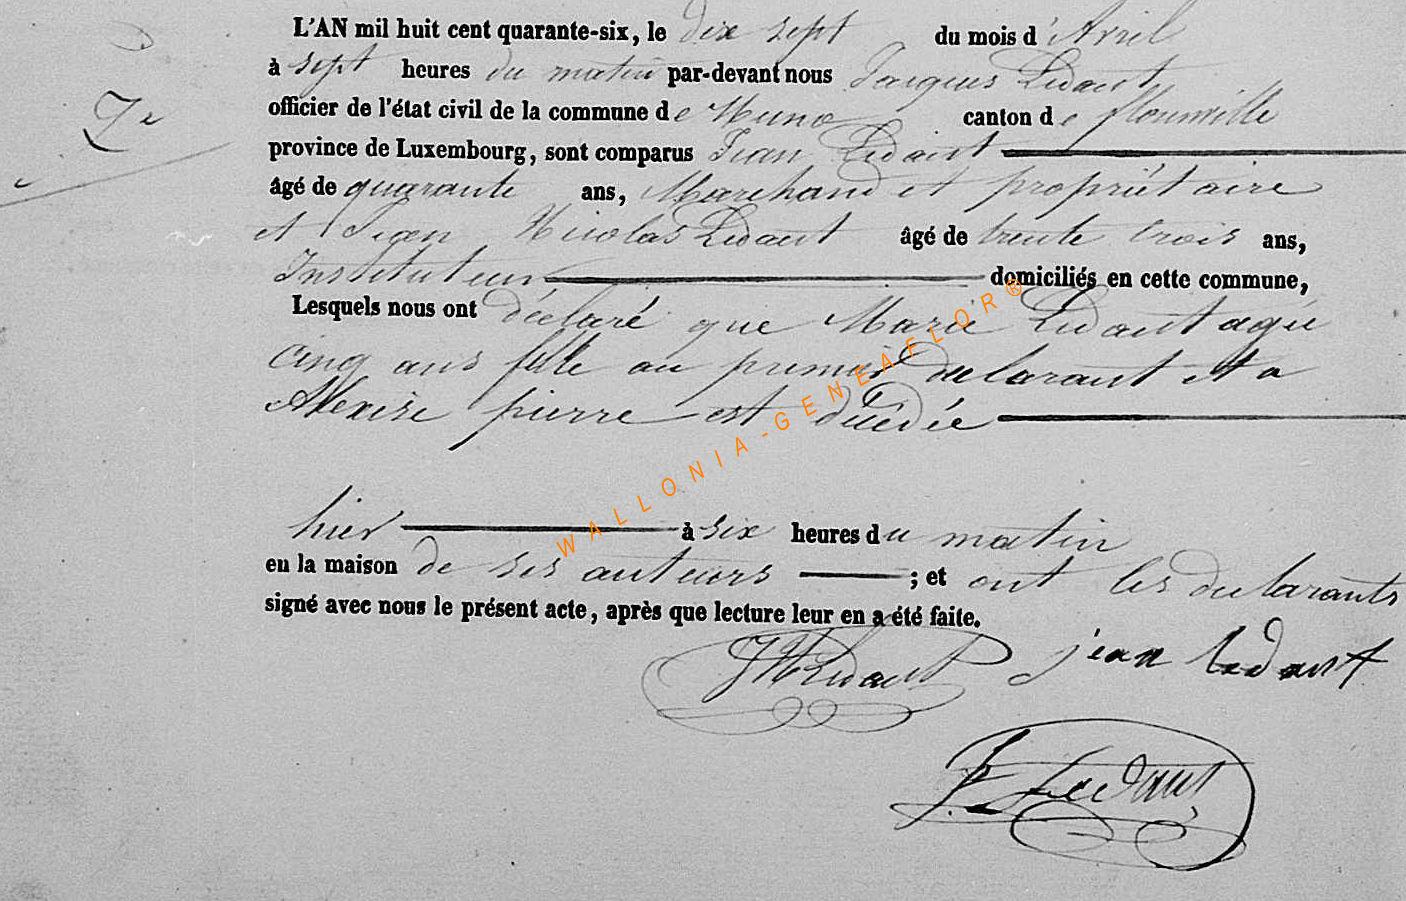 L'AN mil huit cent quarante-six, le dix sept du mois d'Avril
à sept heures du matin par-devant nous Jacques Ledant
officier de l'état civil de la commune de Muno canton de florenville
province de Luxembourg, sont comparus Jean Ledant
7e
âgé de quarante ans, Marchand et propriétaire
et Jean Nicolas Ledant âgé de trente trois ans,
Instituteur domiciliés en cette commune,
Lesquels nous ont déclaré que Marie Ledant agée
cinq ans fille au premier declarant et a
Alexise pierre est décédée
hier à six heures du matin
en la maison de ses auteurs ; et ont les declarants
signé avec nous le présent acte, après que lecture leur en a été faite.
JN Ledant jean ledant
J. Ledant
WALLONIA-GENEAFLOR®